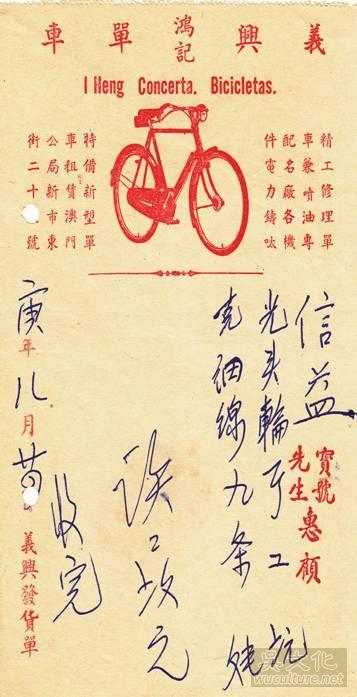 義興
鴻記
單車
I Heng Concerta. Bicicletas.
精工修理單
車兼噴油專
配名廠各機
件電力鑄呔
特備新型單
車租賃澳門
公局新市東
街二十號
信益
寶號
先生
惠顧
光頭輪
綱線九条
收完
庚年八月
義興發貨單
吴文化
wuculture.net